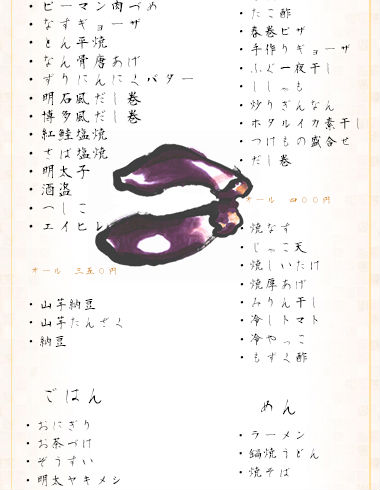 ・ピーマン肉づめ
・なすギョーザ
・とん平焼
・なん骨唐あげ
・ずりにんにくバター
・明石風だし巻
・博多風だし巻
・紅鮭塩焼
・さば塩焼
・明太子
・酒盗
・へしこ
・エイヒレ
オール 三五〇円
・山芋納豆
・山芋たんざく
・納豆
ごはん
・おにぎり
・お茶づけ
・ぞうすい
・明太ヤキメシ
・たこ酢
・春巻ピザ
・手作りギョーザ
・ふぐ一夜干し
・ししゃも
・炒りぎんなん
・ホタルイカ素干し
・つけもの盛合せ
・だし巻
オール 四〇〇円
・焼なす
・じゃこ天
・焼しいたけ
・焼厚あげ
・みりん干し
・冷しトマト
・冷やっこ
・もずく酢
めん
・ラーメン
・鍋焼うどん
・焼そば